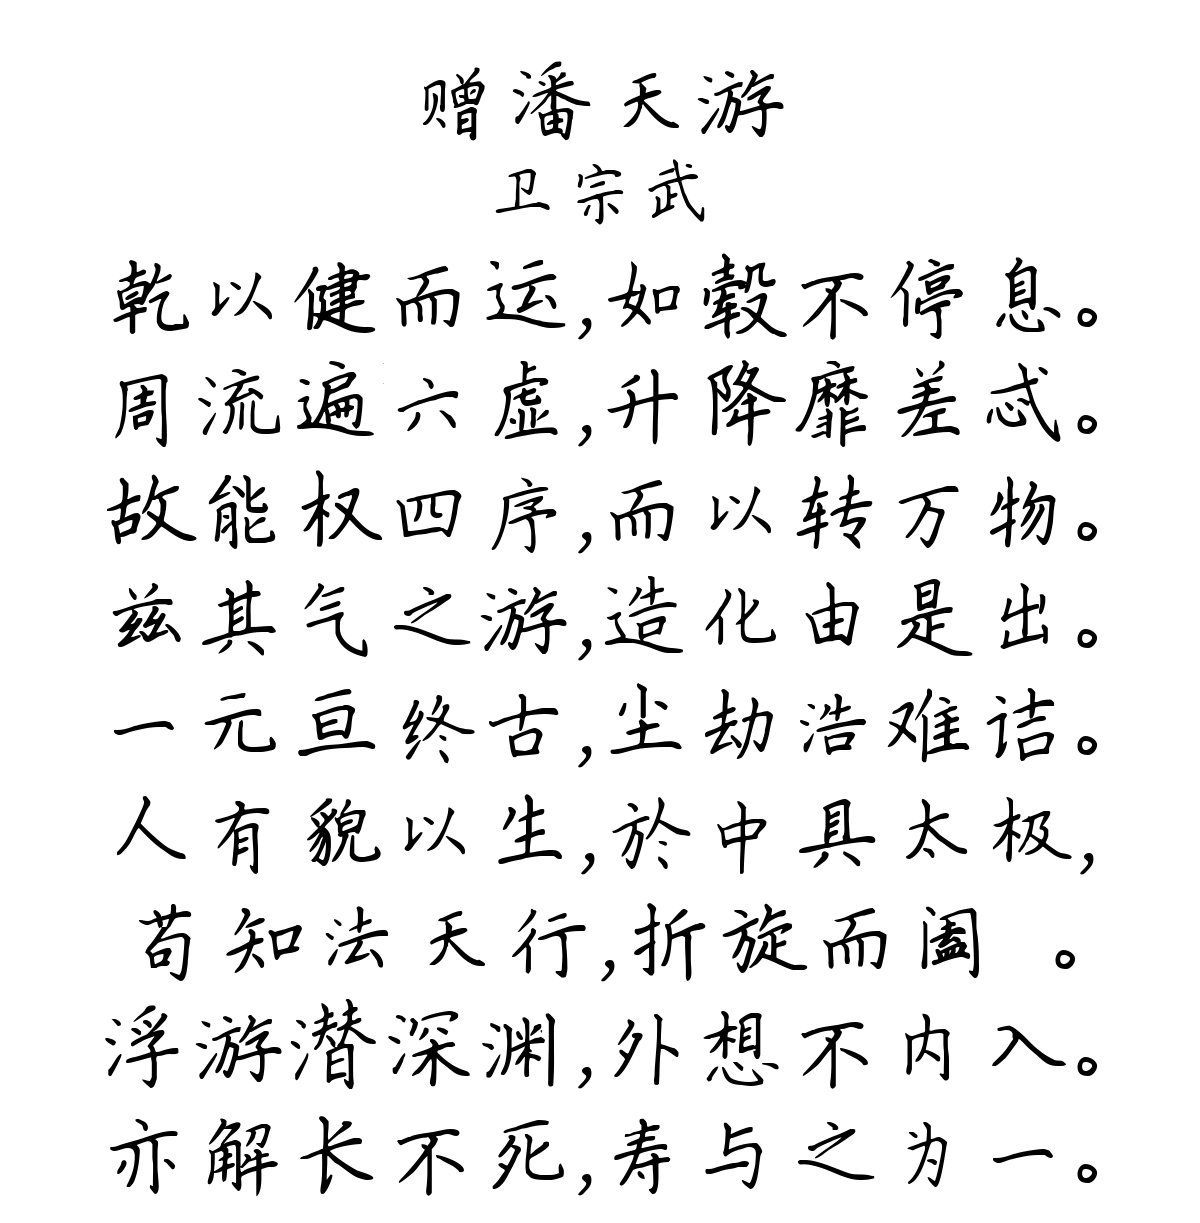 赠潘天游
卫宗武
乾以健而运,如毂不停息。
周流遍六虚,升降靡差忒。
故能权四序,而以转万物。
兹其气之游,造化由是出。
一元亘终古,尘劫浩难诘。
人有貌以生,於中具太极,
苟知法天行,折旋而阖 。
浮游潜深渊,外想不内入。
亦解长不死,寿与之为一。